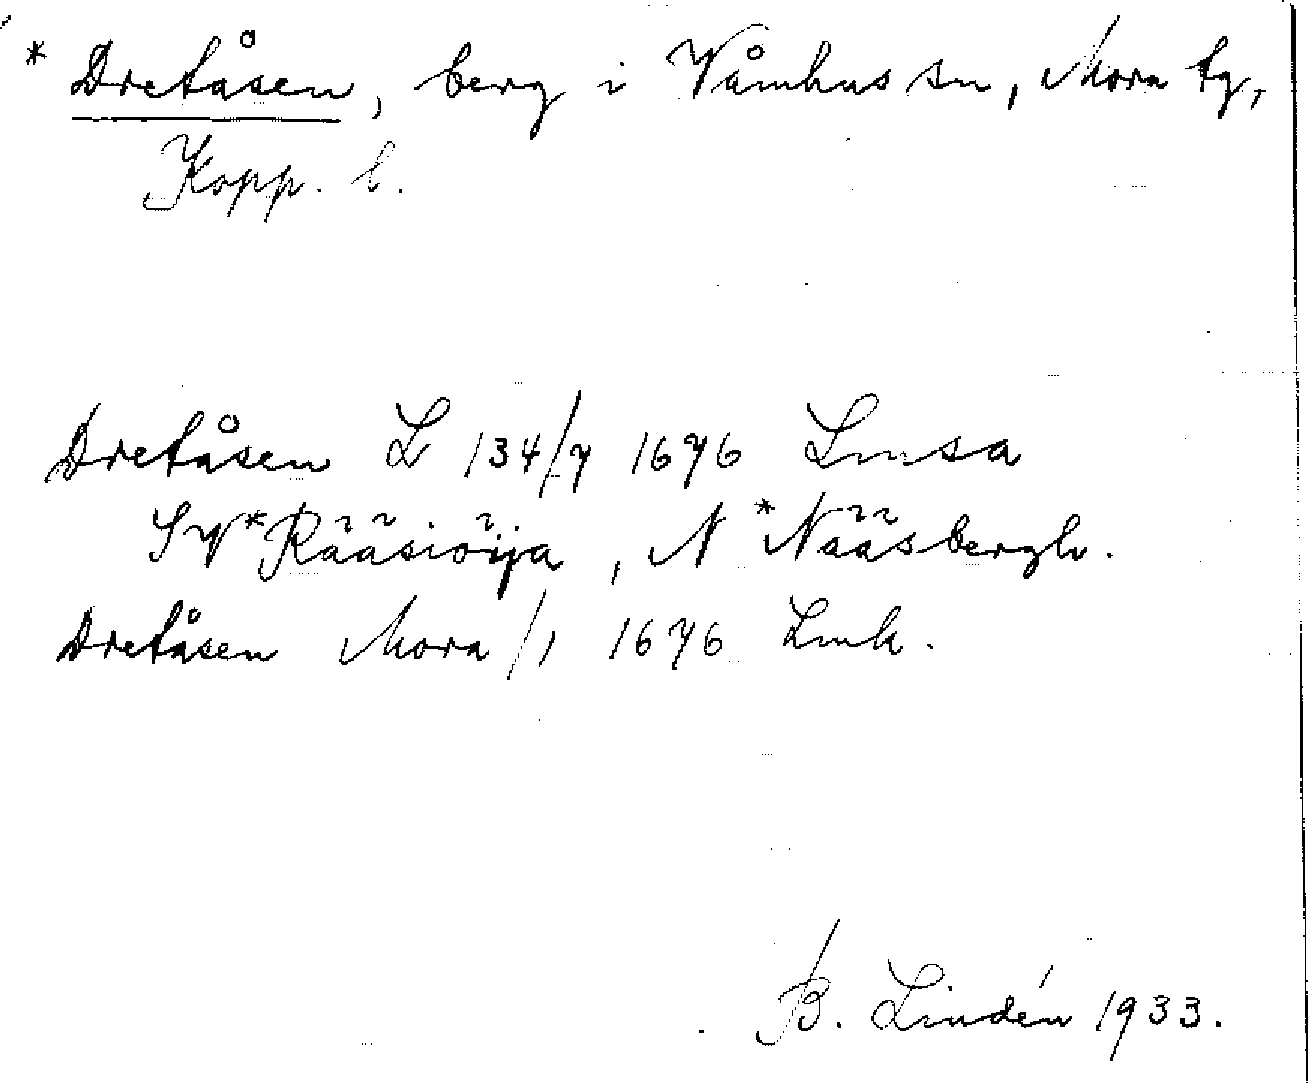 * Dretåsen, berg i Våmhus sn, Mora tg,
Kopp. l.
Dretåsen L 134/7 1676 Lmsa
SV *Rääsiöija, N *Nääsbergh.
Dretåsen Mora/1 1676 Lmk.
B. Lindén 1933.